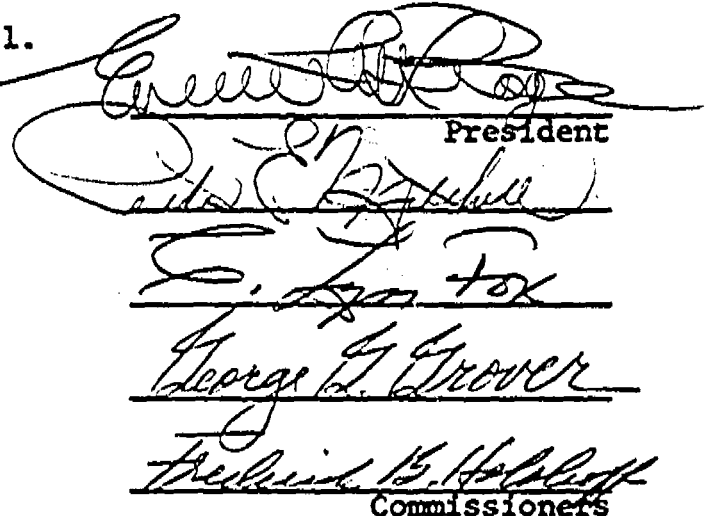 1.
President
Peter E. Mitchell
C. Lyn Fox
George G. Grover
Frederick B. Holoboff
Commissioners